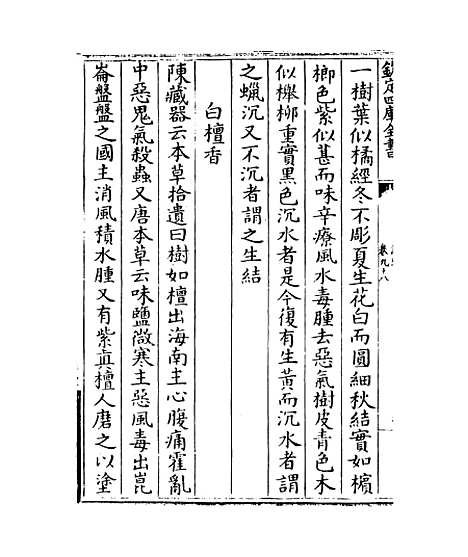 欽定四庫全書
卷九十八
一樹葉似橘經冬不彫夏生花白而圓細秋結實如檳
榔色紫似葚而味辛療風水毒腫去惡氣樹皮青色木
似櫸栁重實黑色沉水者是今復有生黃而沉水者謂
之蠟沉又不沉者謂之生結
白檀香
陳藏器云本草拾遺曰樹如檀出海南主心腹痛霍亂
中惡鬼氣殺蟲又唐本草云味鹽㣲寒主惡風毒出崑
崙盤盤之國主消風積水腫又有紫真檀人磨之以塗